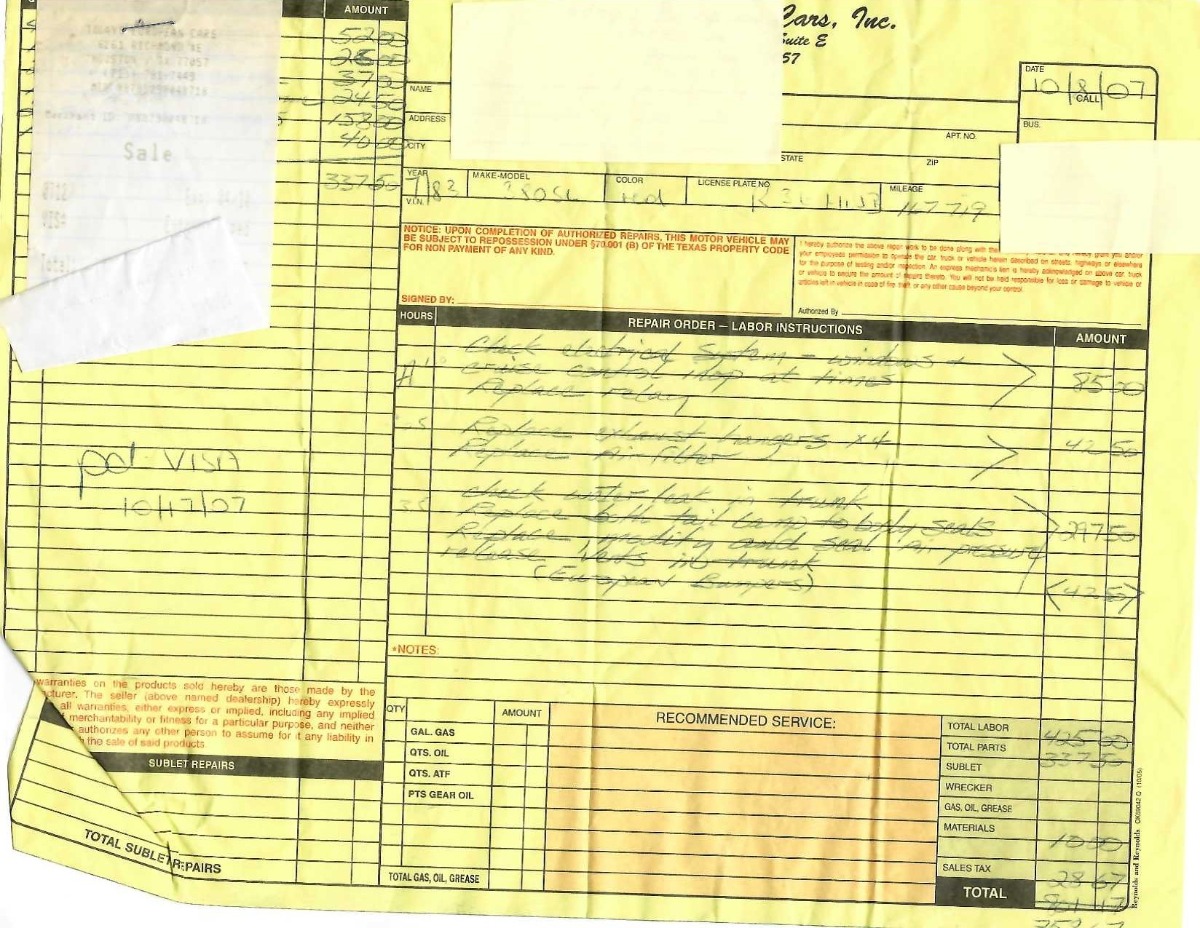 AMOUNT
52 00
28 00
37 0
24 50
158 00
40 00
337 50
EUROPEAN CARS
6263 RICHMOND
77057
Sale
pd VISA
10/17/07
warranties on the products sold hereby are those made by the
turer. The seller (above named dealership) hereby expressly
all warranties, either express or implied, including any implied
merchantability or fitness for a particular purpose, and neither
authorizes any other person to assume for it any liability in
the sale of said products.
SUBLET REPAIRS
TOTAL SUBLET REPAIRS
Cars, Inc.
Suite E
57
DATE
10/8/07
CALL
NAME
ADDRESS
BUS.
APT. NO.
CITY
STATE
ZIP
YEAR
MAKE-MODEL
COLOR
LICENSE PLATE NO
MILEAGE
7/83 380SL red 167 719
V.I.N.
NOTICE: UPON COMPLETION OF AUTHORIZED REPAIRS, THIS MOTOR VEHICLE MAY
BE SUBJECT TO REPOSSESSION UNDER §70.001 (B) OF THE TEXAS PROPERTY CODE
FOR NON PAYMENT OF ANY KIND.
SIGNED BY:
I hereby authorize the above repair work to be done along with the
your employees permission to operate the car, truck or vehicle herein described on streets, highways or elsewhere
for the purpose of testing and/or inspection. An express mechanics lien is hereby acknowledged on above car, truck
or vehicle to secure the amount of repairs thereto. You will not be held responsible for loss or damage to vehicle or
articles left in vehicle in case of fire, theft or any other cause beyond your control.
Authorized By
HOURS
REPAIR ORDER — LABOR INSTRUCTIONS
AMOUNT
Check electrical system - windows +
cruise control stop at times
85 00
Replace relay
.5 Replace exhaust hangers x4
42 50
Replace Air Filter
check water leak in trunk
3.5 Replace both tail lamp to body seals
297 50
Replace, modify and seal air pressure
release vents in trunk
(European Bumpers)
<42 50>
*NOTES:
QTY
AMOUNT
GAL. GAS
QTS. OIL
QTS. ATF
PTS GEAR OIL
TOTAL GAS, OIL, GREASE
RECOMMENDED SERVICE:
TOTAL LABOR 425 00
TOTAL PARTS 337 50
SUBLET
WRECKER
GAS, OIL, GREASE
MATERIALS
10 00
SALES TAX 28 67
TOTAL 801 17
758 67
Reynolds and Reynolds